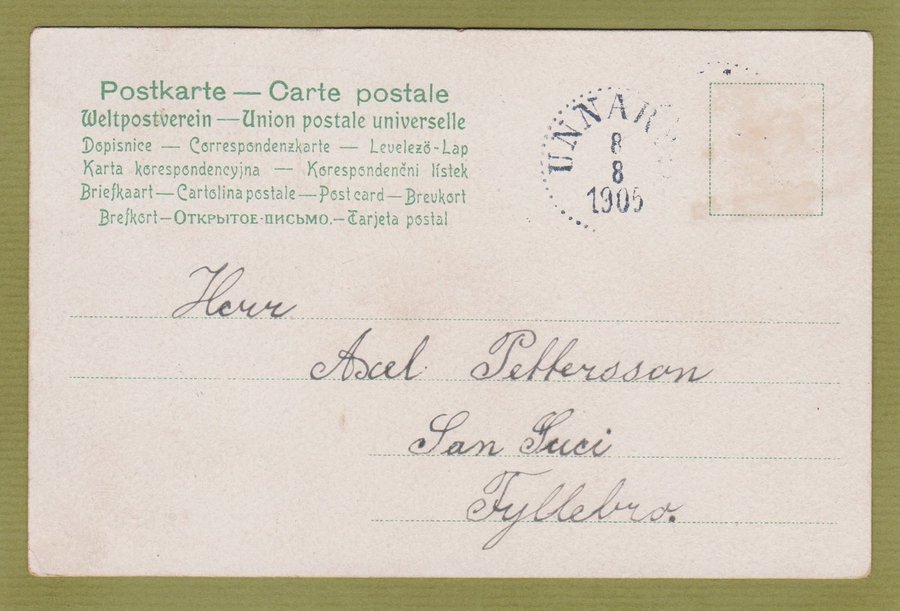 Postkarte — Carte postale
Weltpostverein — Union postale universelle
Dopisnice — Correspondenzkarte — Levelező-Lap
Karta korespondencyjna — Korespondenčni lístek
Briefkaart — Cartolina postale — Post card — Brevkort
Brefkort — ОТКРЫТОЕ-ПИСЬМО. — Tarjeta postal
8
8
1905
Herr
Axel Pettersson
San Suci
Fyllebro.